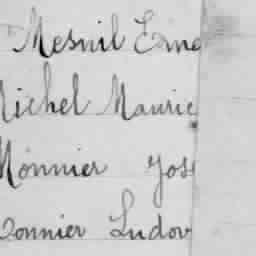 Mesnil Erne
Michel Mauric
Monnier Jos
Monnier Ludov